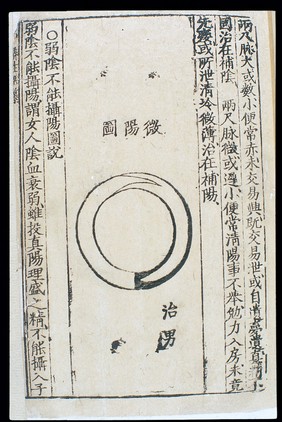 兩尺脉大或數小便常赤未交易興既交易泄或自
國治在補陰 兩尺脉微或遲小便常清陽事不舉勉力入房未竟
先痿或所泄清冷微薄治在補陽
微陽圖
治男
○弱陰不能攝陽圖說
弱陰不能攝陽謂女人陰血衰弱雖投真陽理盛之精不能攝入子